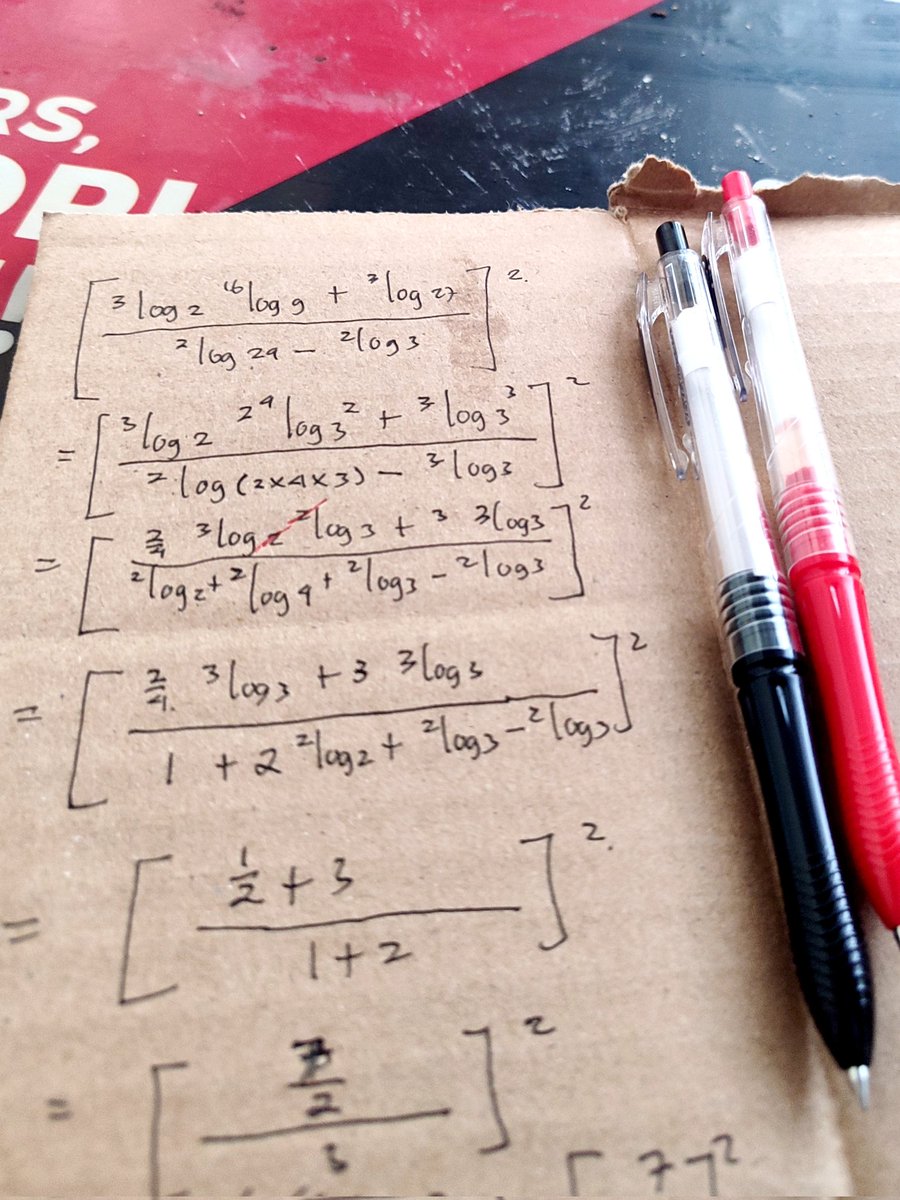 RS,
[ (³log 2 ¹⁶log 9 + ³log 27) / (²log 24 − ²log 3) ]².
= [ (³log 2 ²⁴log 3² + ³log 3³) / (²log (2×4×3) − ³log 3) ]²
= [ (2/4 ³log 2 ²log 3 + 3 ³log 3) / (²log 2 + ²log 4 + ²log 3 − ²log 3) ]²
= [ (2/4. ³log 3 + 3 ³log 3) / (1 + 2 ²log 2 + ²log 3 − ²log 3) ]²
= [ (1/2 + 3) / (1 + 2) ]².
= [ (7/2) / 3 ]²
[ 7 ]²